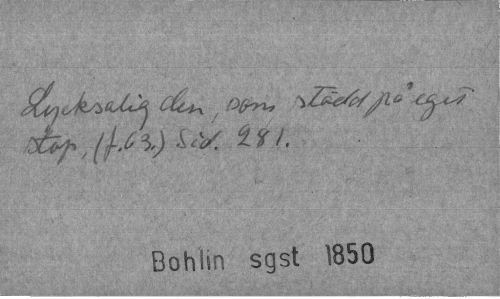 Lycksalig den, som städd på eget
stop, (f.63.) Sid. 281.
Bohlin sgst 1850